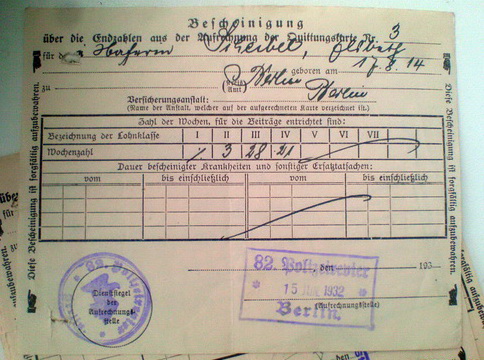 Bescheinigung
über die Endzahlen aus der Aufrechnung der Quittungskarte Nr. 3
für
geboren am 17.8.14
zu Berlin
(Kreis) (Amt) Berlin
Versicherungsanstalt:
(Name der Anstalt, welcher auf der aufgerechneten Karte verzeichnet ist.)
Zahl der Wochen, für die Beiträge entrichtet sind:
Bezeichnung der Lohnklasse I II III IV V VI VII
Wochenzahl 3 28 21
Dauer bescheinigter Krankheiten und sonstiger Ersatztatsachen:
vom bis einschließlich vom bis einschließlich
den 193
82. Polizeirevier
1932
Berlin.
(Aufrechnungsstelle)
Dienstsiegel
der
Aufrechnungs-
stelle
Diese Bescheinigung ist sorgfältig aufzubewahren.
Diese Bescheinigung ist sorgfältig aufzubewahren.